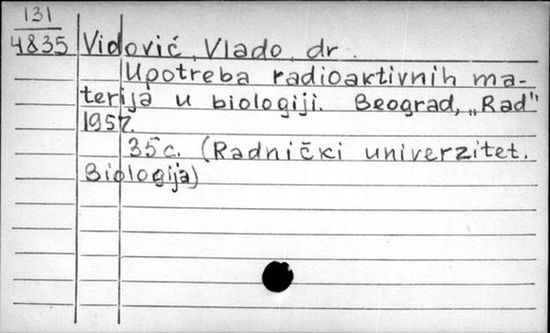 131
4835 Vidović, Vlado, dr.
Upotreba radioaktivnih ma-
terija u biologiji. Beograd, „Rad"
1957.
35 c. (Radnički univerzitet.
Biologija)